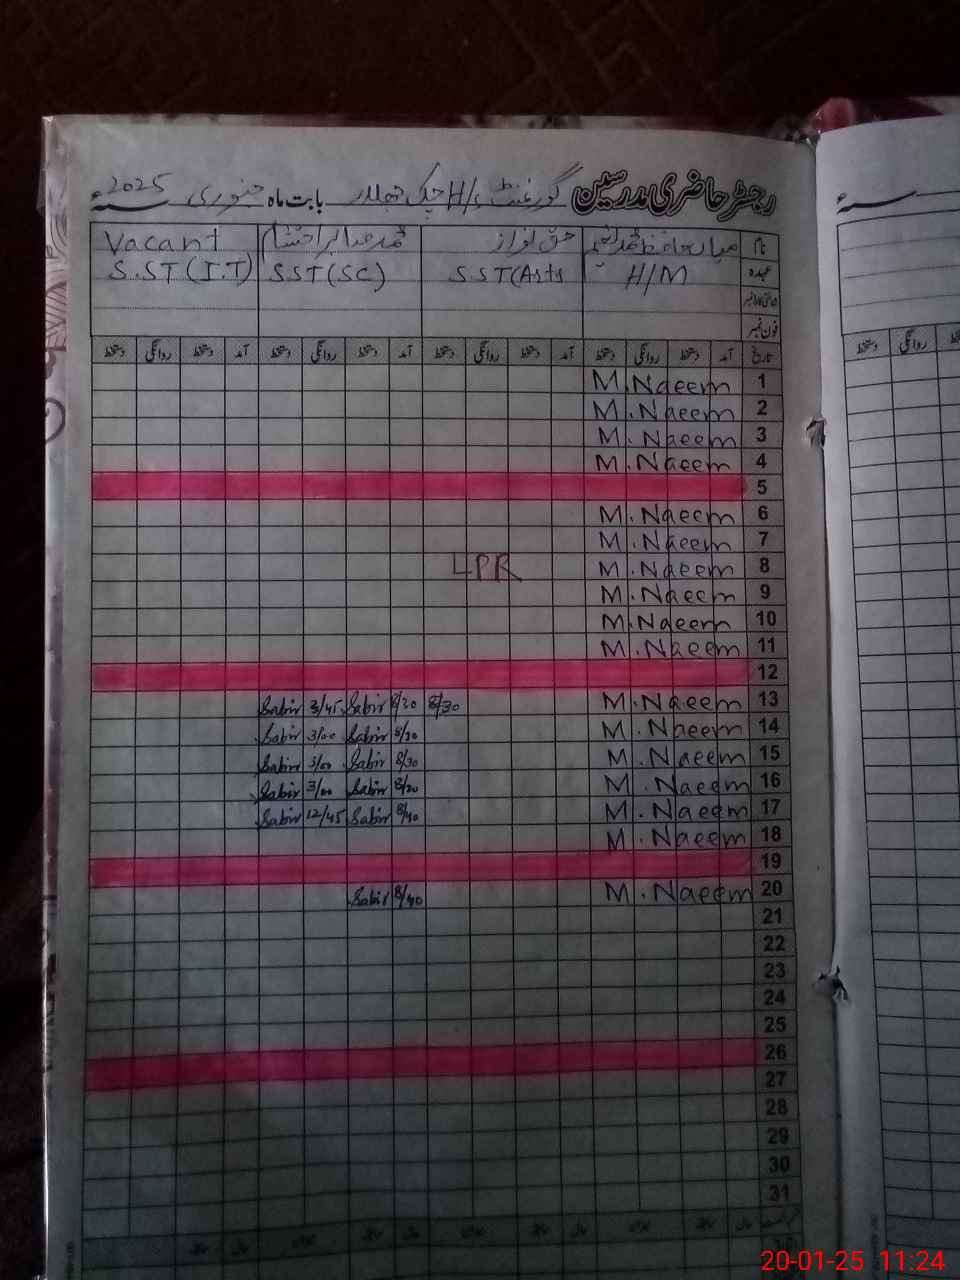 رجسٹر حاضری مدرسین گورنمنٹ H/S چک جھلار بابت ماہ جنوری 2025ء
نام میاں حافظ محمد نعیم حق نواز محمد صابر احتشام Vacant
عہدہ H/M S.ST(Arts SST(SC) S.ST(I.T)
شناختی کارڈ نمبر
فون نمبر
تاریخ آمد دستخط روانگی دستخط آمد دستخط روانگی دستخط آمد دستخط روانگی دستخط آمد دستخط روانگی دستخط
روانگی دستخط
1 M.Naeem
2 M.Naeem
3 M.Naeem
4 M.Naeem
5
6 M.Naeem
7 M.Naeem
8 M.Naeem LPR
9 M.Naeem
10 M.Naeem
11 M.Naeem
12
13 M.Naeem 8/30 8/30 Sabir 3/45 Sabir
14 M.Naeem 8/30 Sabir 3/00 Sabir
15 M.Naeem 8/30 Sabir 3/00 Sabir
16 M.Naeem 8/30 Sabir 3/00 Sabir
17 M.Naeem 8/40 Sabir 12/45 Sabir
18 M.Naeem
19
20 M.Naeem 8/40 Sabir
21
22
23
24
25
26
27
28
29
30
31
20-01-25 11:24